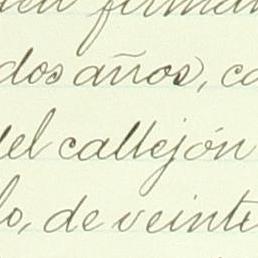 firman
dos años, ca
del callejón
lo, de veinte